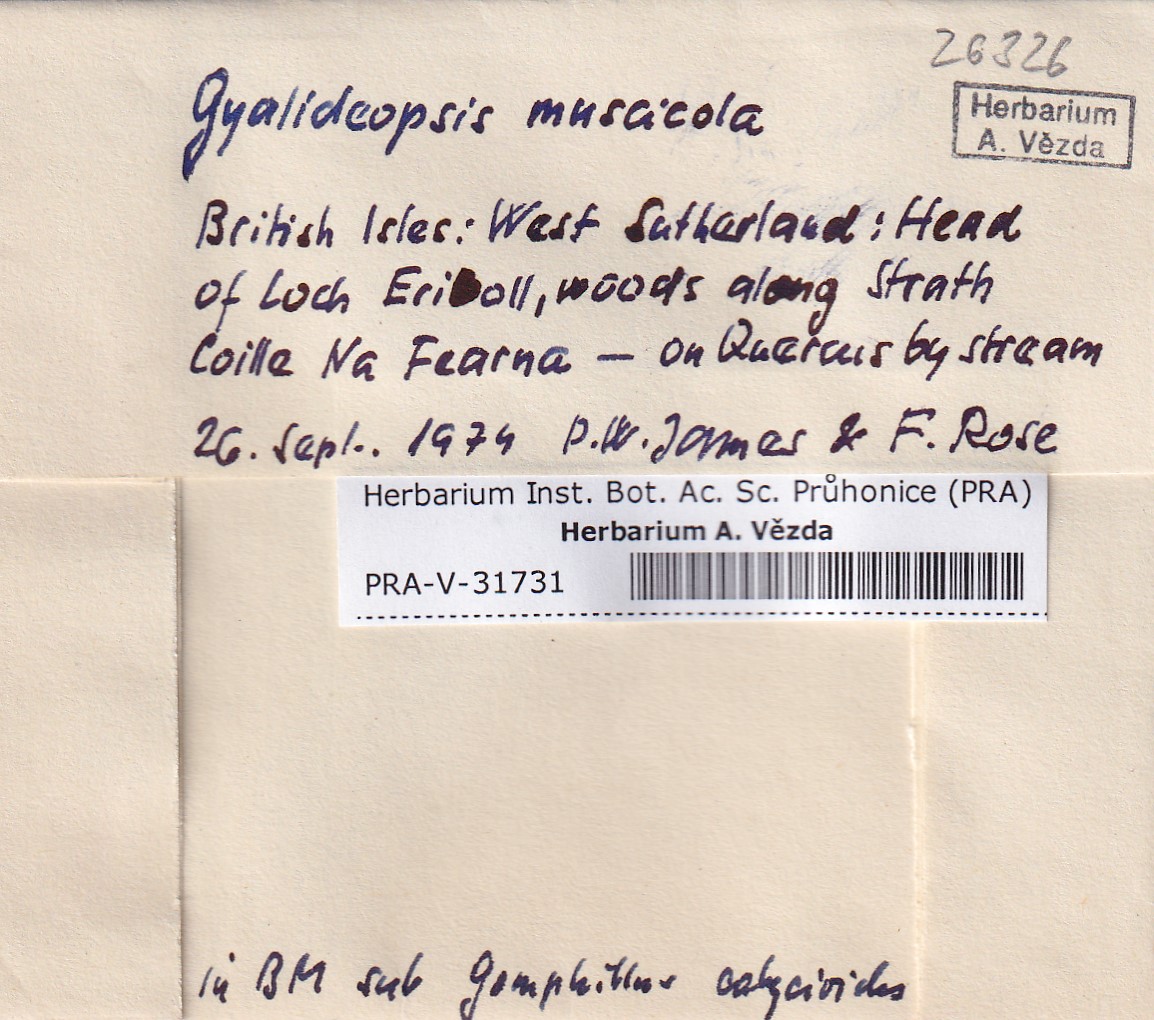 26326
Herbarium
A. Vězda
Gyalideopsis muscicola
British Isles: West Sutherland: Head
of Loch Eriboll, woods along Strath
Coille Na Fearna — on Quercus by stream
26. Sept. 1974 P.W. James & F. Rose
Herbarium Inst. Bot. Ac. Sc. Průhonice (PRA)
Herbarium A. Vězda
PRA-V-31731
in BM sub Gomphillus calycioides